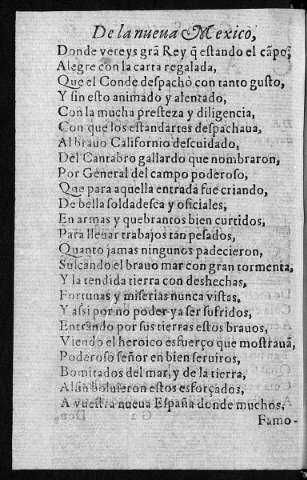 De la nueva Mexico,
Donde vereys grã Rey q̃ estando el cãpo,
Alegre con la carta regalada,
Que el Conde despachò con tanto gusto,
Y sin esto animado y alentado,
Con la mucha presteza y diligencia,
Con que los estandartes despachaua,
Al brauo Californio descuidado,
Del Cantabro gallardo que nombraron,
Por General del campo poderoso,
Que para aquella entrada fue criando,
De bella soldadesca y oficiales,
En armas y quebrantos bien curtidos,
Para lleuar trabajos tan pesados,
Quanto jamas ningunos padecieron,
Sulcando el brauo mar con gran tormenta,
Y la tendida tierra con deshechas,
Fortunas y miserias nunca vistas.
Y assi por no poder ya ser sufridos,
Entrando por sus tierras estos brauos,
Viendo el heroico esfuerço que mostrauã,
Poderoso señor en bien seruiros,
Bomitados del mar, y de la tierra,
Al fin boluieron estos esforçados,
A vuestra nueua España donde muchos,
Famo-